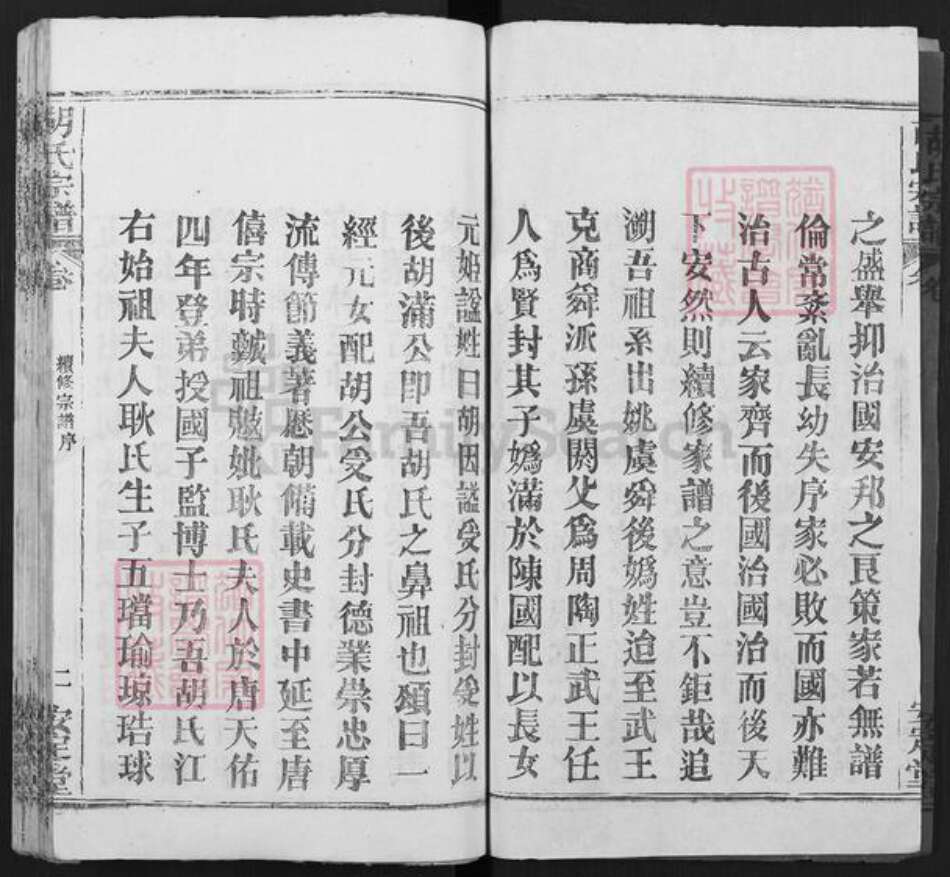 之盛舉抑治國安邦之艮策家若無譜
倫常紊亂長幼失序家必敗而國亦難
治古人云家齊而後國治國治而後天
下安然則續修家譜之意豈不鉅哉追
溯吾祖系出姚虞舜後媯姓迨至武王
克商舜派孫虞閼父爲周陶正武王任
人爲賢封其子媯滿於陳國配以長女
元姬謚姓曰胡因謚受氏分封受姓以
後胡滿公卽吾胡氏之鼻祖也頌曰一
經元女配胡公受氏分封德業崇忠厚
流傳節義著懸朝備載史書中延至唐
僖宗時 祖 妣耿氏夫人於唐天佑
四年登弟授國子監博士乃吾胡氏江
右始祖夫人耿氏生子五璫瑜琼琣球
胡氏宗譜
卷
續修宗譜序
二
安定堂
FamilySearch